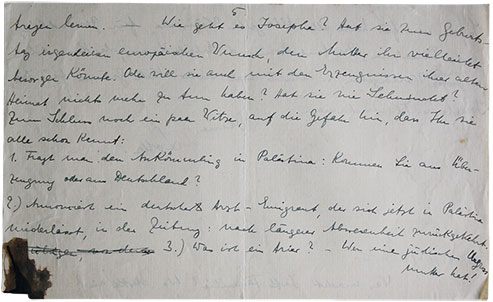 5
tragen lernen. — Wie geht es Josepha? Hat sie zum Geburts-
tag irgendeinen europäischen Wunsch, den Mutter ihr vielleicht
besorgen könnte. Oder will sie auch mit den Erzeugnissen ihrer alten
Heimat nichts mehr zu tun haben? Hat sie nie Lebensnotet?
Zum Schluss noch ein paar Witze, auf die Gefahr hin, dass Ihr sie
alle schon kennt:
1. Fragt man den Ankömmling in Palästina: Kommen Sie aus Über-
zeugung oder aus Deutschland?
2.) Annonciert ein deutscher Arzt-Emigrant, der sich jetzt in Palästina
niederlässt, in der Zeitung: nach längerer Abwesenheit zurückgekehrt.
3.) Was ist ein Arier? — Wer eine jüdische Urgross
mutter hat!